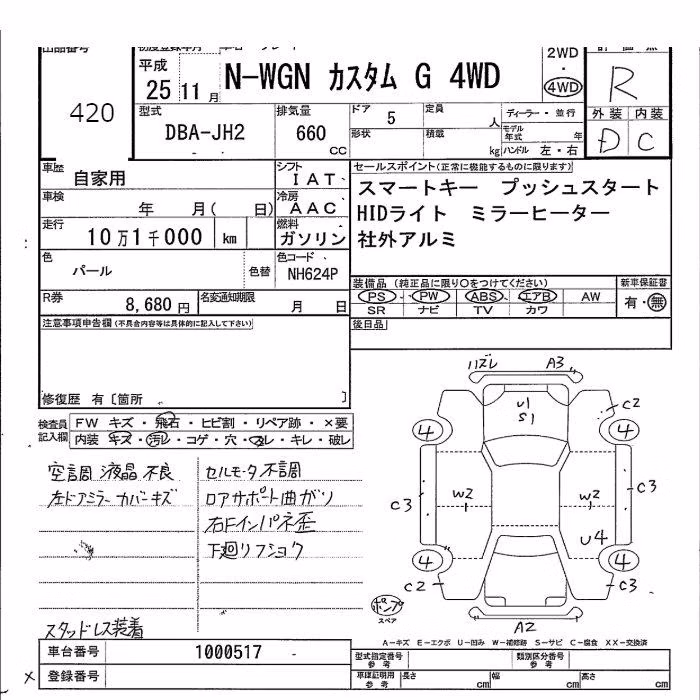 420
平成
25 11 月
N-WGN カスタム G 4WD
2WD
・
4WD
R
型式
DBA-JH2
排気量
660
CC
ドア
5
定員
人
ディーラー・並行
形状
積載
kg
モデル年式
年
ハンドル 左・右
外装 内装
D C
車歴
自家用
シフト
IAT
車検
年 月( 日)
冷房
AAC
走行
10万1千000 km
燃料
ガソリン
セールスポイント(正常に機能するものに限ります)
スマートキー プッシュスタート
HIDライト ミラーヒーター
社外アルミ
色
パール
色替
色コード
NH624P
装備品 (純正品に限り○をつけてください)
PS PW ABS エアB AW
SR ナビ TV カワ
新車保証書
有・無
R券
8,680円
名変通知期限
月 日
後日品
注意事項申告欄(不具合内容等は具体的に記入して下さい)
修復歴 有〔箇所 〕
検査員
記入欄
FW キズ・飛石・ヒビ割・リペア跡・×要
内装 キズ・汚レ・コゲ・穴・スレ・キレ・破レ
空調液晶不良
左ドアミラーカバーキズ
スタッドレス装着
セルモータ不調
ロアサポート曲ガリ
右Fインパネ歪
下廻リフショク
ハズレ
A3
U1
S1
C2
4
4
C3
W2
W2
C3
U4
4
4
C2
C3
ポンプ
スペア
A2
A-キズ E-エクボ U-凹み W-補修跡 S-サビ C-腐食 XX-交換済
車台番号
1000517 -
× 登録番号
型式指定番号
参考
類別区分番号
参考
車庫証明用
参考
長さ
cm
幅
cm
高さ
cm